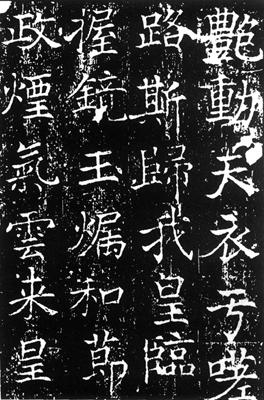 豔動天衣亏嗟
路斯歸我皇臨
握鏡玉爥和節
政煙氣雲来皇